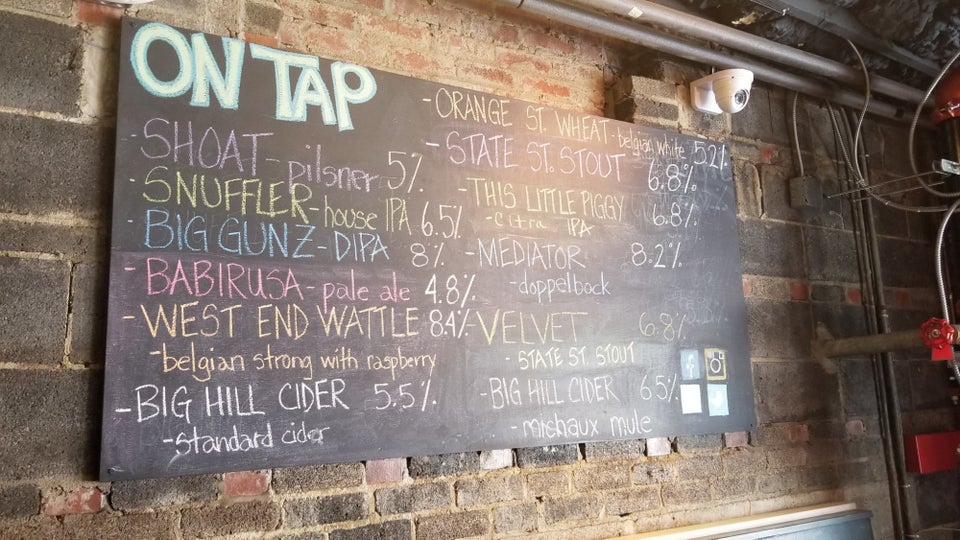 ON TAP
- SHOAT - pilsner 5%
- SNUFFLER - house IPA 6.5%
- BIG GUNZ - DIPA 8%
- BABIRUSA - pale ale 4.8%
- WEST END WATTLE 8.4%
- belgian strong with raspberry
- BIG HILL CIDER 5.5%
- standard cider
- ORANGE ST. WHEAT - belgian white 5.2%
- STATE ST. STOUT 6.8%
- THIS LITTLE PIGGY 6.8%
- Citra IPA
- MEDIATOR 8.2%
- doppelbock
- VELVET 6.8%
- STATE ST. STOUT
- BIG HILL CIDER 6.5%
- michaux mule